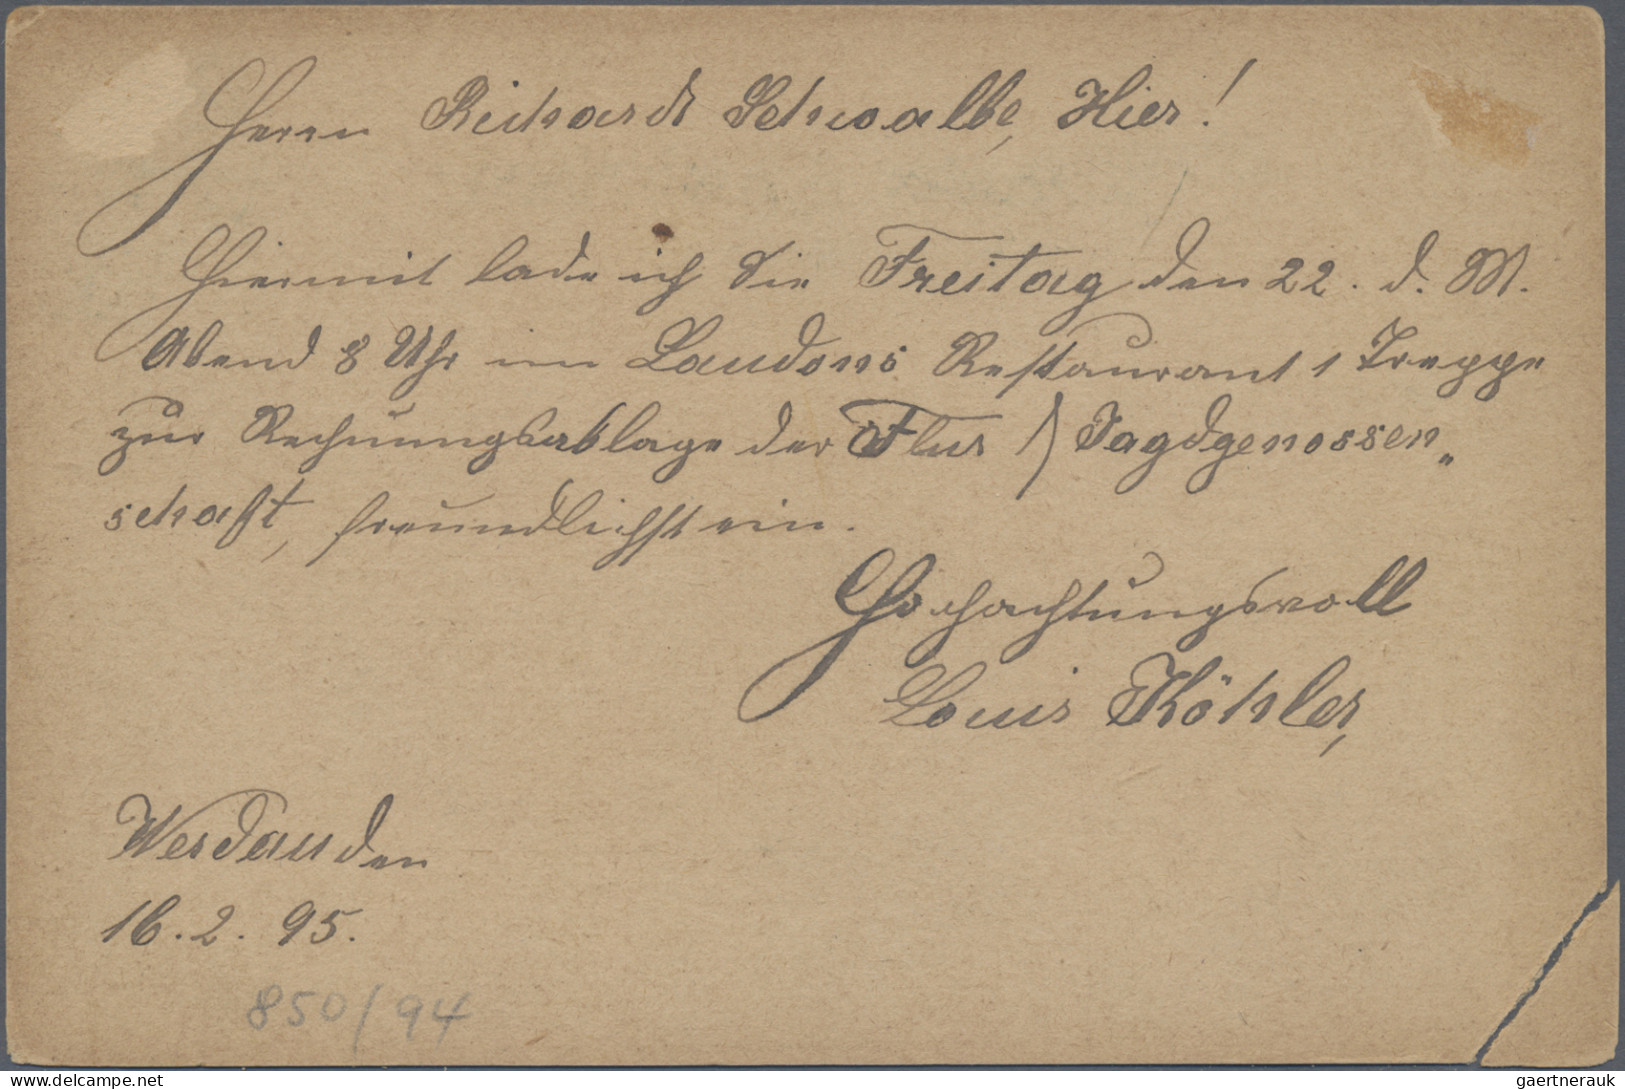 Herrn Richard Schwalbe, Hier!
Hiermit lade ich Sie Freitag den 22. d. M.
Abend 8 Uhr im Laudons Restaurant 1 Treppe
zur Rechnungsablage der Flur / Jagdgenossen„
schaft, freundlichst ein.
Hochachtungsvoll
Louis Köhler,
Werdau den
16. 2. 95.
850/94
gaertnerauk